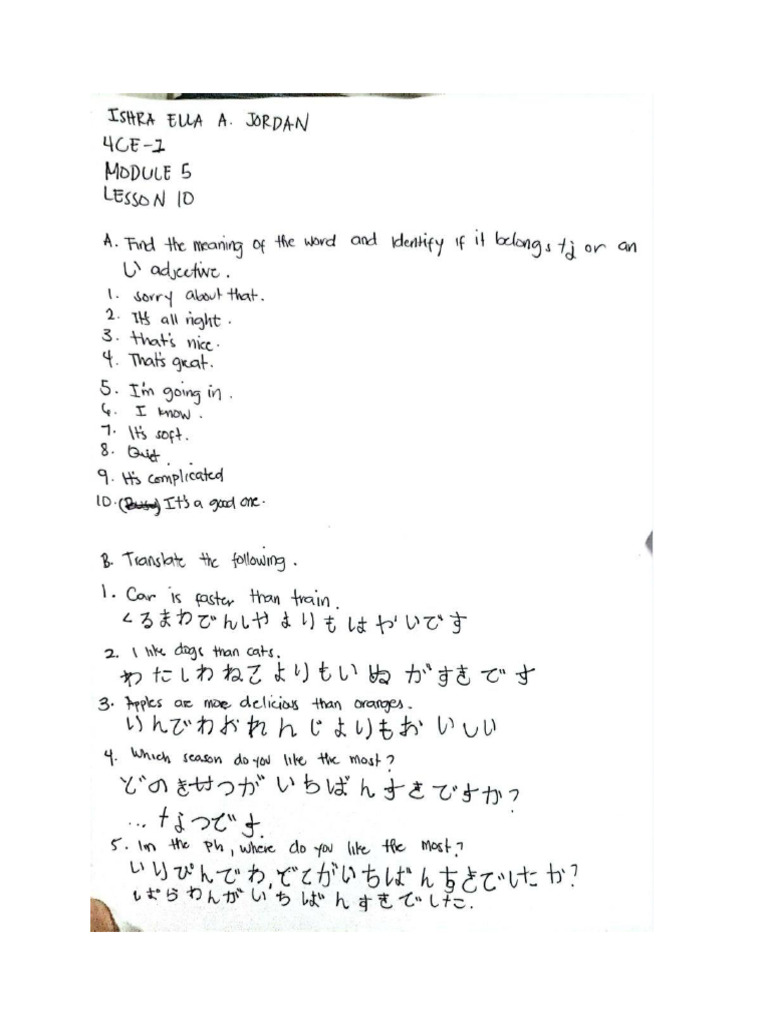 ISHRA ELLA A. JORDAN
4CE-1
MODULE 5
LESSON 10
A. Find the meaning of the word and identify if it belongs or an
い adjective.
1. sorry about that.
2. It's all right.
3. that's nice.
4. That's great.
5. I'm going in.
6. I know.
7. It's soft.
8. Quiet
9. It's complicated
10. It's a good one.
B. Translate the following.
1. Car is faster than train.
くるまわでんしゃよりもはやいです
2. I like dogs than cats.
わたしわねこよりもいぬがすきです
3. Apples are more delicious than oranges.
りんごわおれんじよりもおいしい
4. Which season do you like the most?
どのきせつがいちばんすきですか?
...なつです.
5. In the Ph, where do you like the most?
がいちばん でしたか?
がいちばんすきでした.